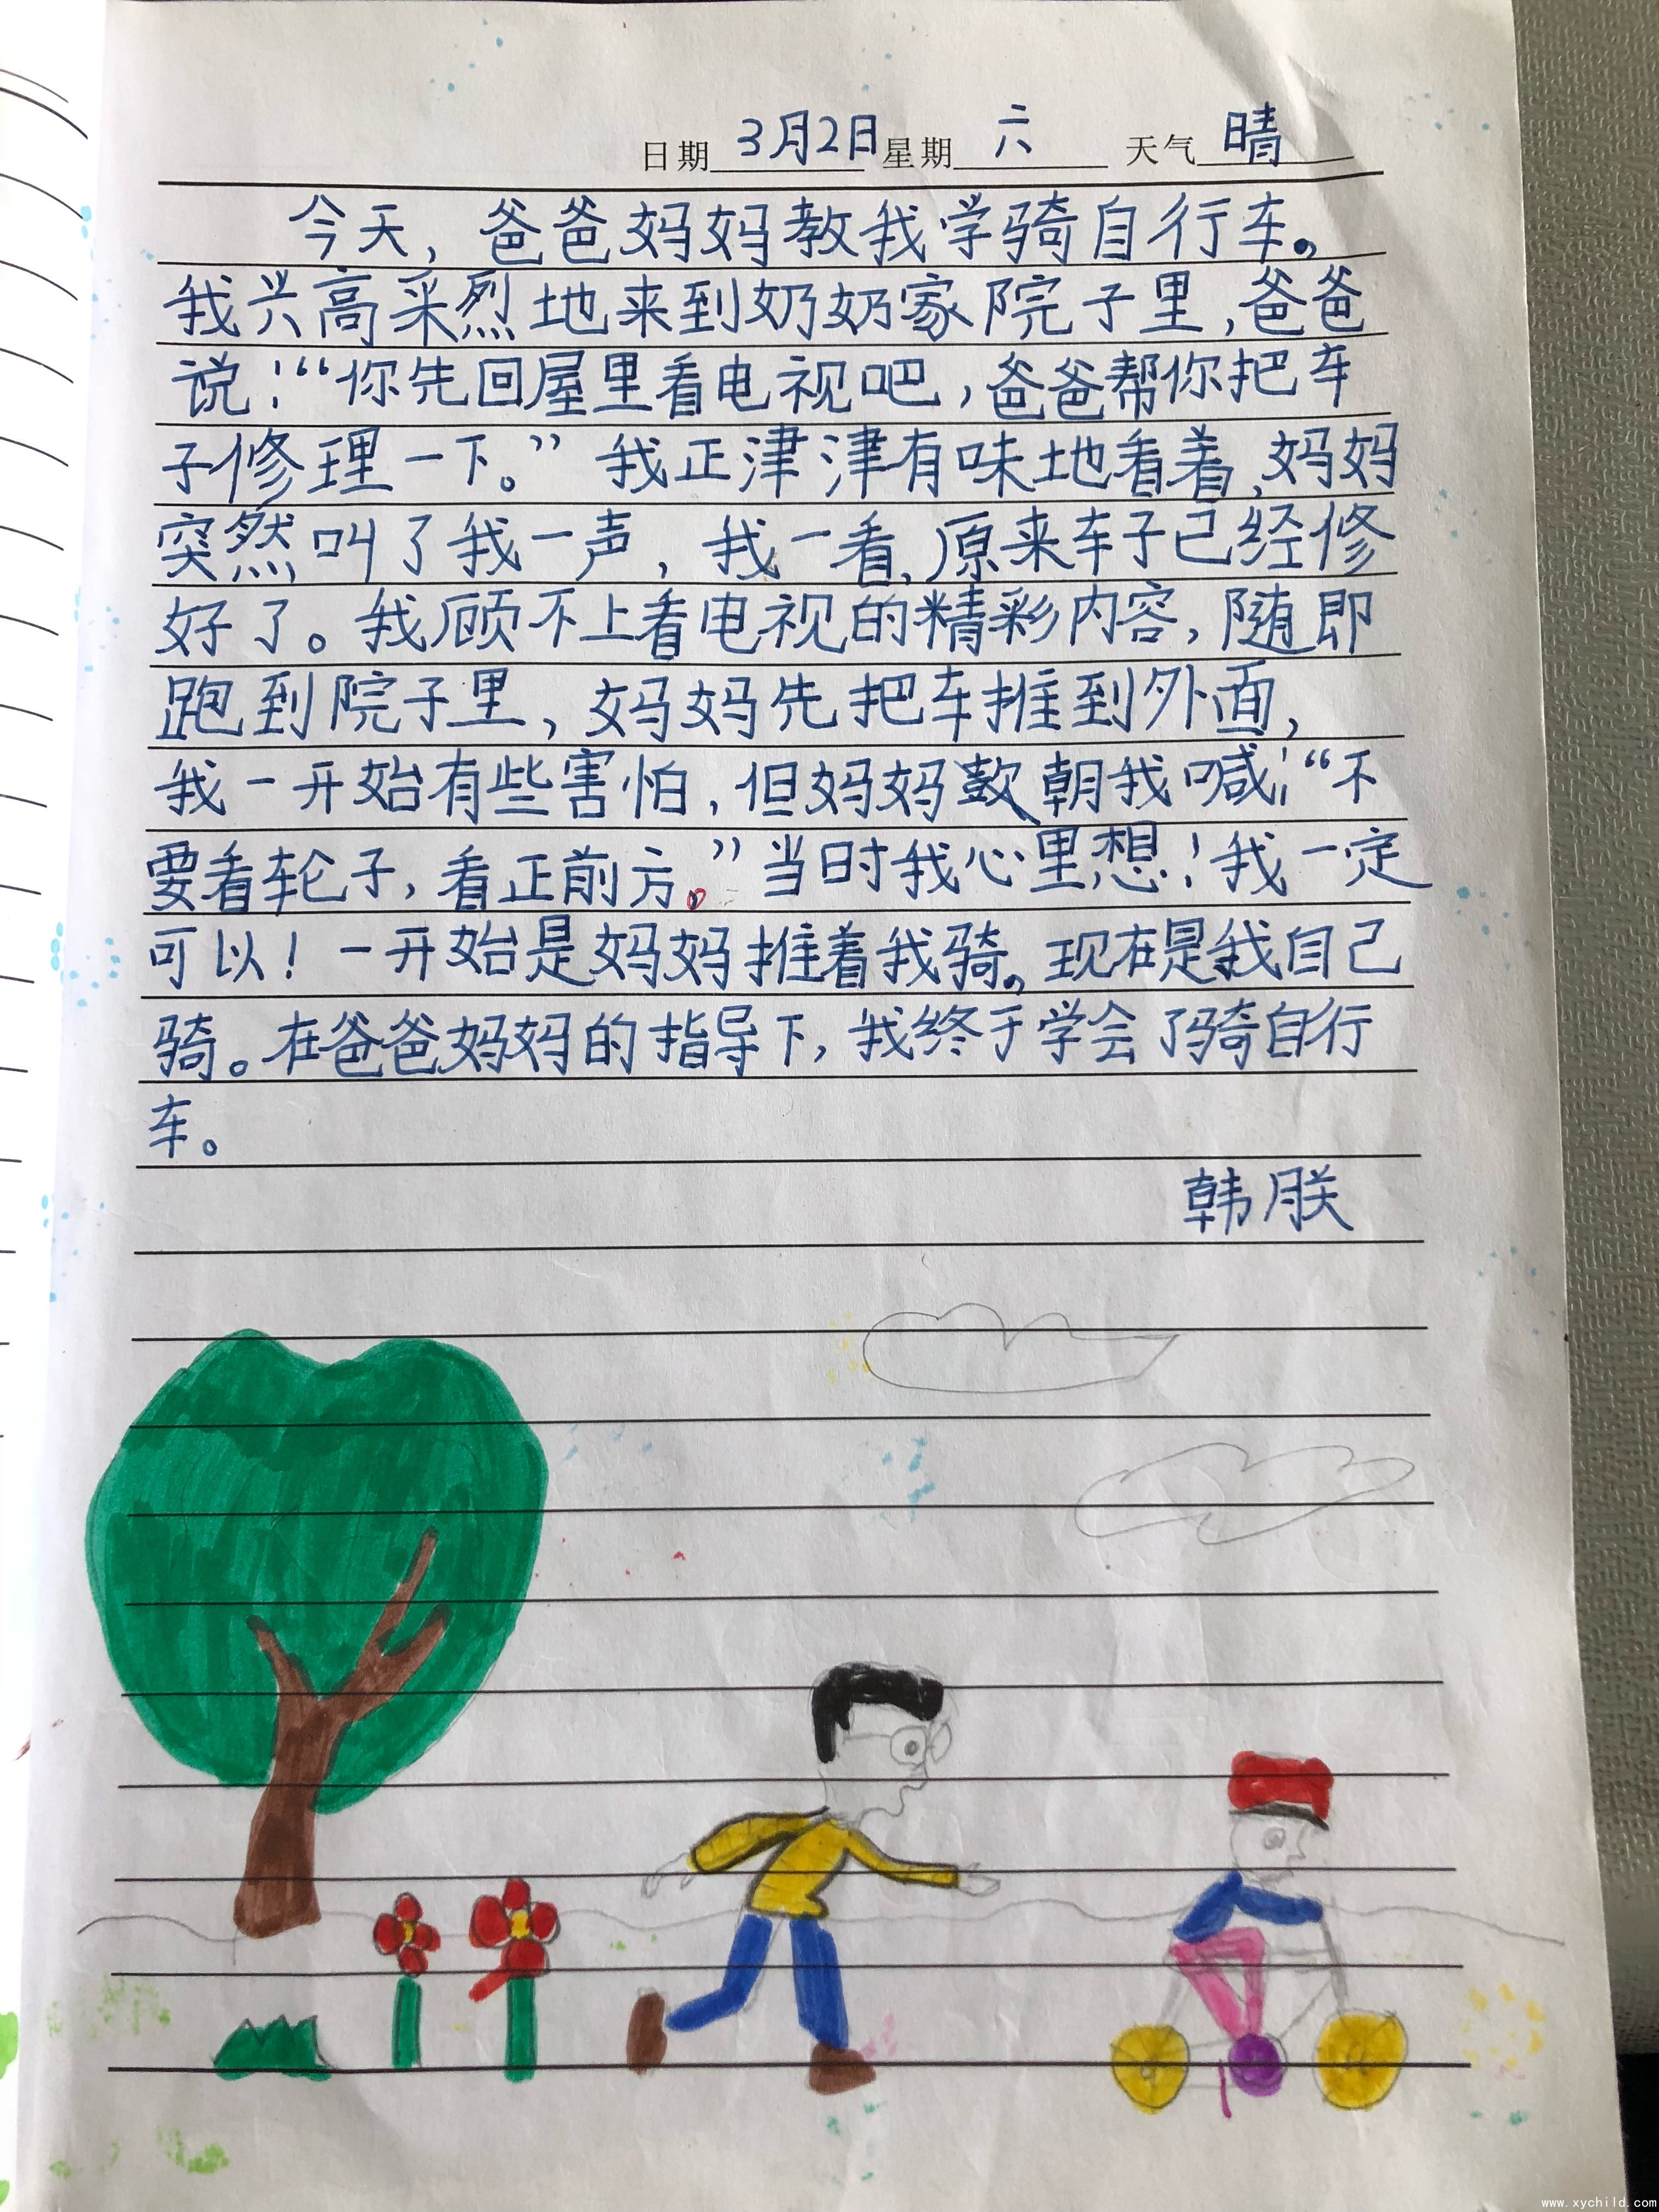 日期 3月2日 星期 六 天气 晴
今天，爸爸妈妈教我学骑自行车。
我兴高采烈地来到奶奶家院子里，爸爸
说：“你先回屋里看电视吧，爸爸帮你把车
子修理一下。”我正津津有味地看着，妈妈
突然叫了我一声，我一看，原来车子已经修
好了。我顾不上看电视的精彩内容，随即
跑到院子里，妈妈先把车推到外面，
我一开始有些害怕，但妈妈朝我喊：“不
要看轮子，看正前方。”当时我心里想：我一定
可以！一开始是妈妈推着我骑。现在是我自己
骑。在爸爸妈妈的指导下，我终于学会了骑自行
车。
韩朕
www.xychild.com